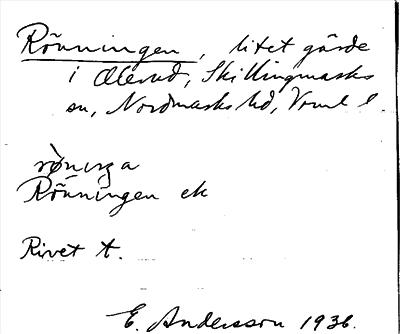 Rönningen, litet gärde
i Ålerud, Skillingmarks
sn, Nordmarks hd, Vrml l.
Rönningen ek
Rivet t.
E. Andersson 1936.